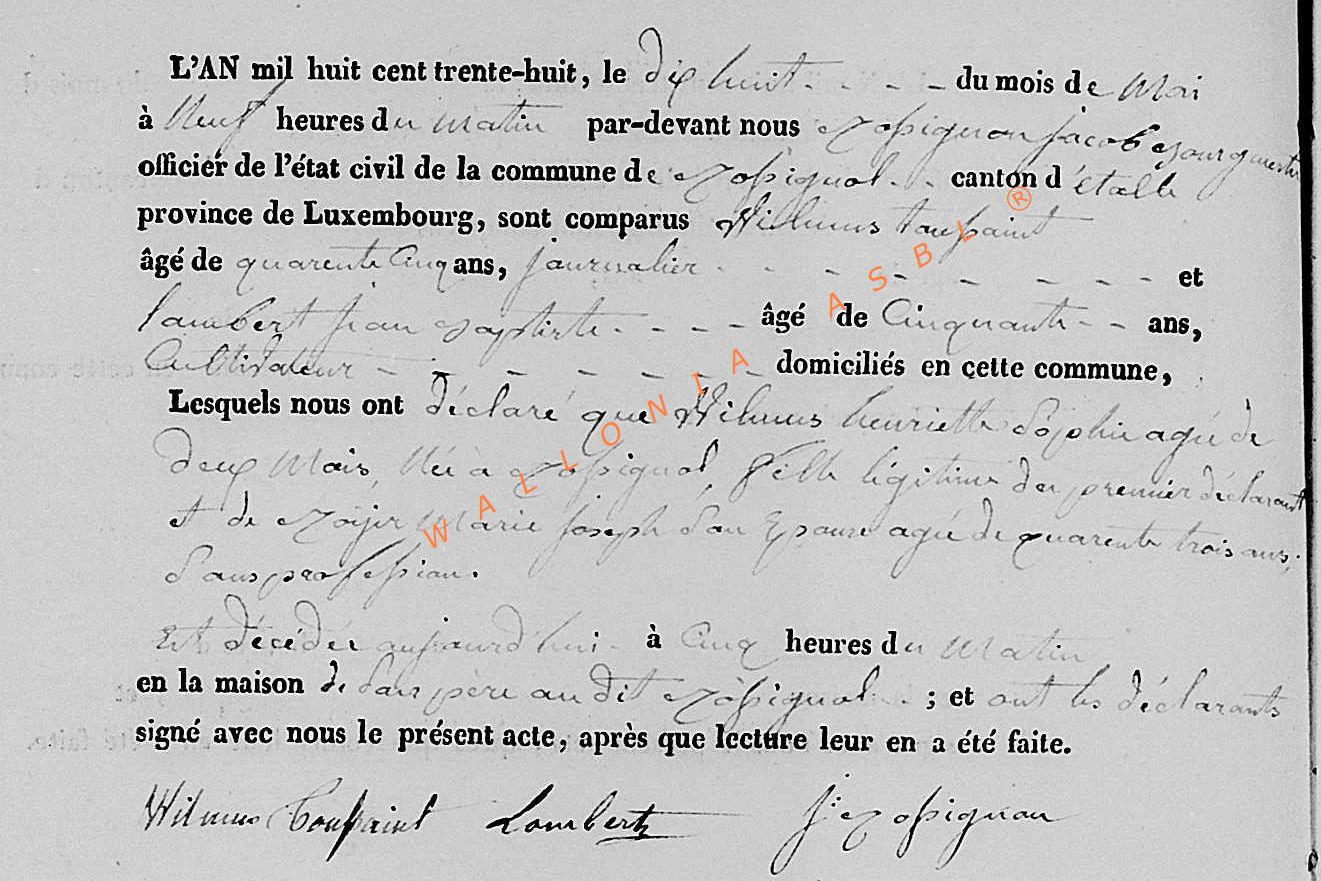 L'AN mil huit cent trente-huit, le dix huit - - - - du mois de Mai
à Neuf heures du Matin par-devant nous Rossignon Jacob Bourgmestre
officier de l'état civil de la commune de Rossignol - - canton d'étalle
province de Luxembourg, sont comparus Wilmus toussaint
âgé de quarente Cinq ans, journalier - - - - - - - - et
lambert jean Baptiste - - - - âgé de Cinquante - - ans,
Cultivateur - - - - - - - domiciliés en cette commune,
Lesquels nous ont déclaré que Wilmus henriette Sophie agée de
deux Mois, Née a Rossignol, fille légitime du premier déclarant
et de Marie Joseph Son Epouse agée de quarente trois ans,
Sans profession.
Est décédée aujourd'hui - à Cinq heures du Matin
en la maison de Son père au dit Rossignol - - ; et ont les déclarants
signé avec nous le présent acte, après que lecture leur en a été faite.
Wilmus Toussaint Lambert J: Rossignon
WALLONIA ASBL ®